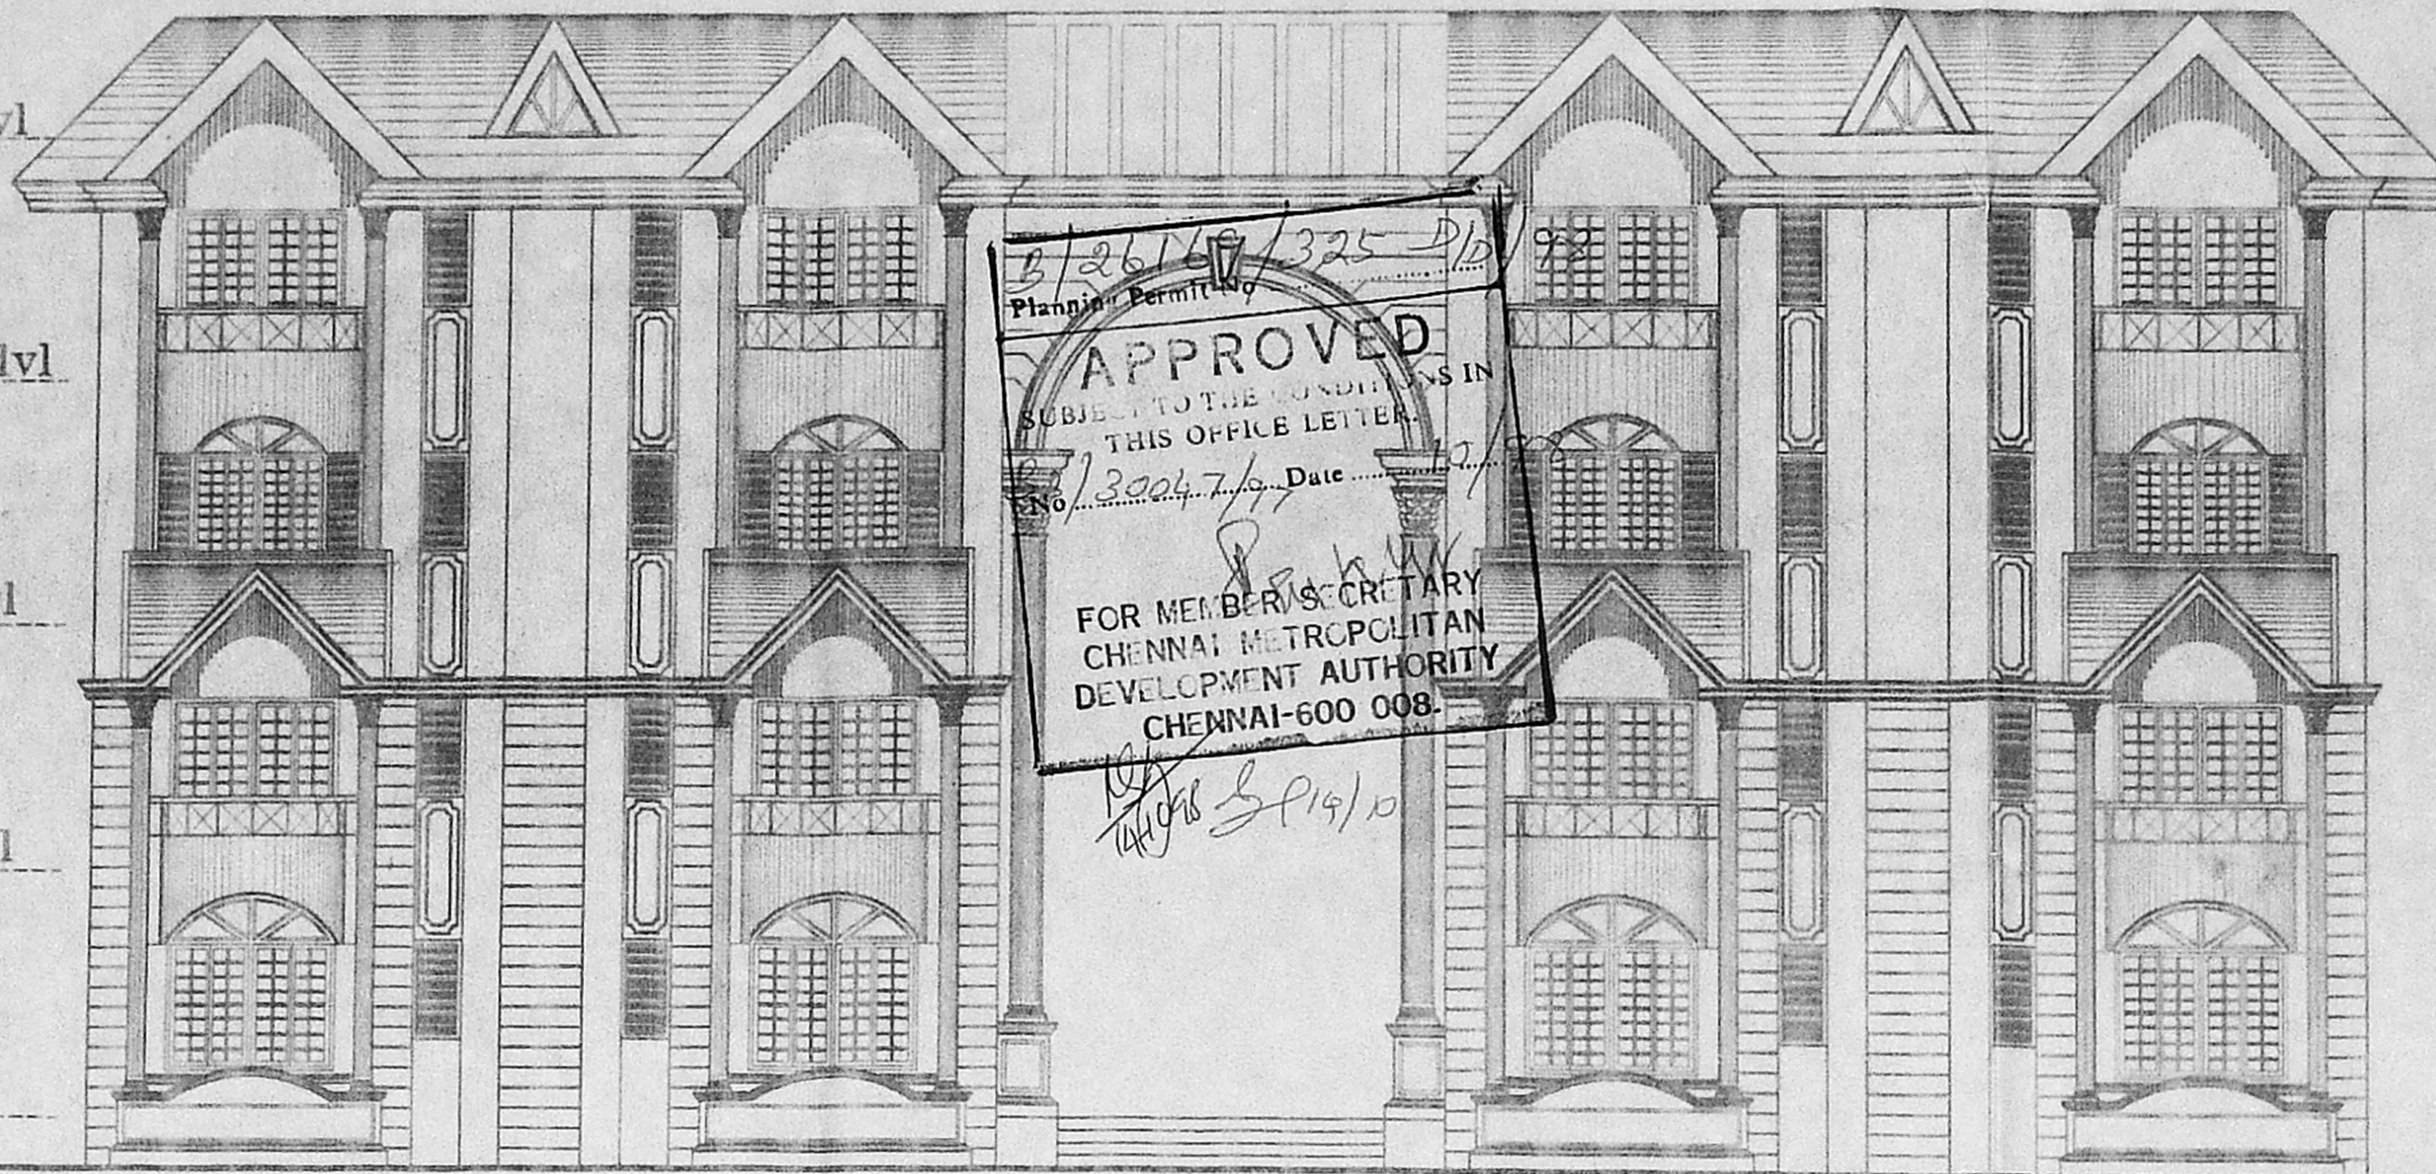 lvl
B/26169/325 D/D/98
Planning Permit No
APPROVED
SUBJECT TO THE CONDITIONS IN
THIS OFFICE LETTER.
No /30047/97 Date 10/98
FOR MEMBER SECRETARY
CHENNAI METROPOLITAN
DEVELOPMENT AUTHORITY
CHENNAI-600 008.
14/10/98
14/10